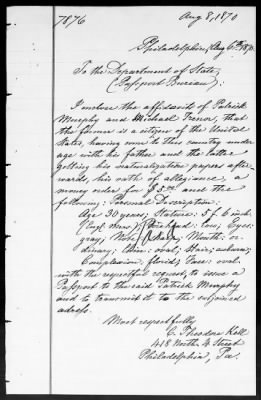 7876
Aug 8, 1870
Philadelphia, Aug 6th 1870
To the Department of State,
(Passport Bureau):
I inclose the affidavit of Patrick
Murphy and Michael Trenor, that
the former is a citizen of the United
States, having come to this country under
age with his father and the latter
getting his naturalization papers after-
wards, his oath of allegiance, a
money order for $5.00 and the
following: Personal Description:
Age 30 years; Stature: 5 f. 6 inch
(Engl. meas.); Forehead: low; Eyes:
gray; Nose: sharp; Mouth: or-
dinary; Chin: oval; Hair: auburn;
Complexion: florid; Face: oval.
with the respectful request, to issue a
Passport to the said Patrick Murphy
and to transmit it to the subjoined
adress.
Most respectfully
C. Theodore Kell
418 North 4 Street
Philadelphia, Pa.